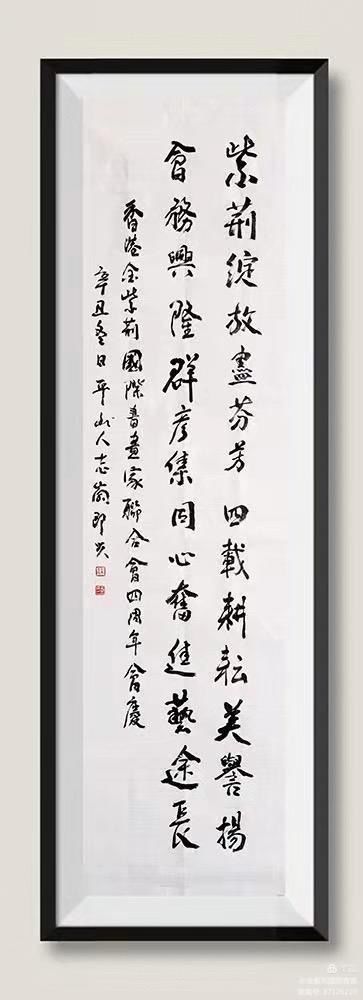 紫荆綻放盡芬芳四載耕耘美譽揚
會務興隆群彦集同心奮進藝途長
香港金紫荆國際書畫家聯合會四周年會慶
辛丑冬日平山人志嵩即興